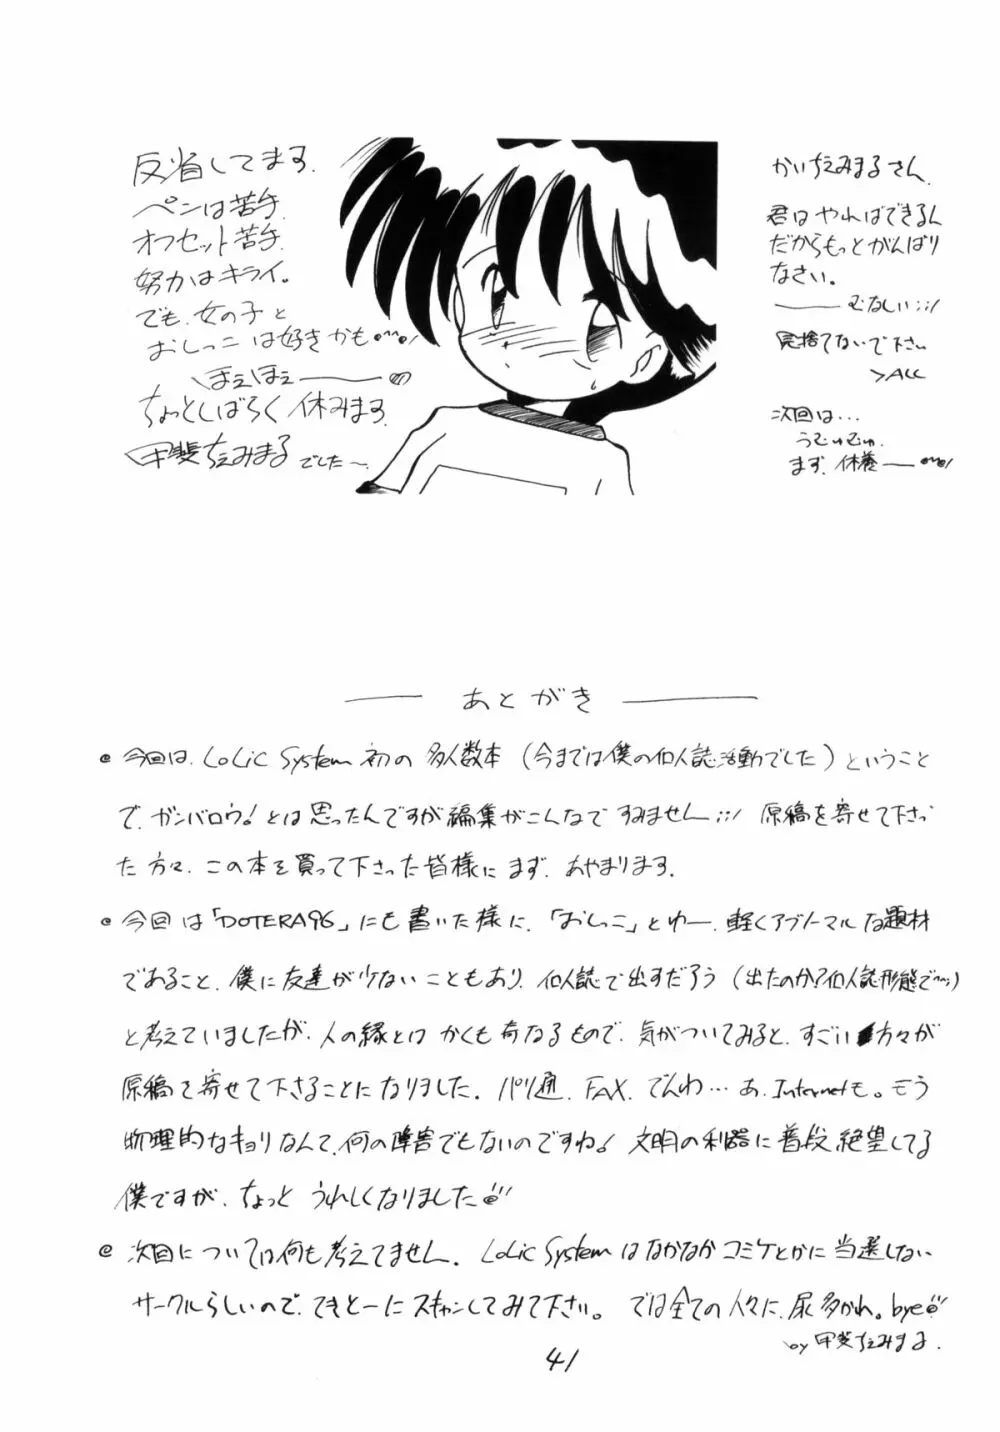 反省してます。
ペンは苦手。
オフセット苦手。
努力はキライ。
でも、女の子と
おしっこは好きかも
ほえほえ
ちょっとしばらく休みます。
甲斐ちえみまるでした〜。
かいちえみまるさん。
君はやればできるん
だからもっとがんばり
なさい。
むなしい;;/
見捨てないで下さい
>ALL
次回は...
うむゅむゅ。
まず、休養
あとがき
@ 今回は、LoLic System初の多人数本(今までは僕の個人誌活動でした)ということ
で、ガンバロウ!とは思ったんですが編集がこんなですみません;;/ 原稿を寄せて下さっ
た方々、この本を買って下さった皆様にまず、あやまります。
@ 今回は「DOTERA96」にも書いた様に、「おしっこ」とゆー、軽くアブノーマルな題材
であること、僕に友達が少ないこともあり、個人誌で出すだろう(出たのか?個人誌形態で〜;)
と考えていましたが、人の縁とはかくも奇なるもので、気がついてみると、すごい方々が
原稿を寄せて下さることになりました。パソ通、FAX、でんわ…あ、Internetも。もう
物理的なキョリなんて、何の障害でもないのですね!文明の利器に普段絶望してる
僕ですが、ちょっとうれしくなりました
@ 次回については何も考えてません。LoLic Systemはなかなかコミケとかに当選しない
サークルらしいので、てきとーにスキャンしてみて下さい。では全ての人々に、尿多かれ。bye
by 甲斐ちえみまる。
41